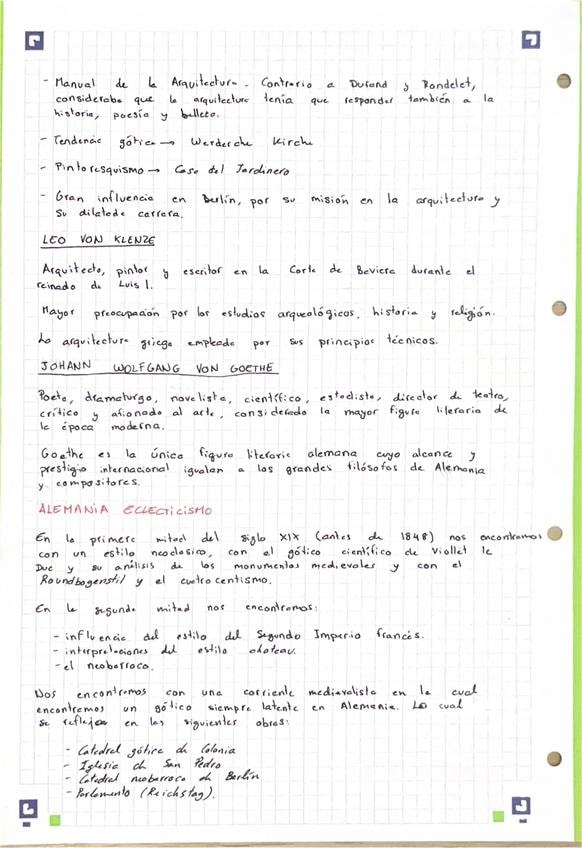 - Manual de la Arquitectura. Contrario a Durand y Rondelet,
consideraba que la arquitectura tenía que responder también a la
historia, poesía y belleza.
- Tendencia gótica → Werderche Kirche
- Pintoresquismo → Casa del Jardinero
- Gran influencia en Berlín, por su misión en la arquitectura y
su dilatada carrera.
LEO VON KLENZE
Arquitecto, pintor y escritor en la Corte de Baviera durante el
reinado de Luis I.
Mayor preocupación por los estudios arqueológicos, historia y religión.
La arquitectura griega empleada por sus principios técnicos.
JOHANN WOLFGANG VON GOETHE
Poeta, dramaturgo, novelista, científico, estadista, director de teatro,
crítico y aficionado al arte, considerado la mayor figura literaria de
la época moderna.
Goethe es la única figura literaria alemana cuyo alcance y
prestigio internacional igualan a los grandes filósofos de Alemania
y compositores.
ALEMANIA ECLECTICISMO
En la primera mitad del siglo XIX (antes de 1848) nos encontramos
con un estilo neoclásico, con el gótico científico de Viollet le
Duc y su análisis de los monumentos medievales y con el
Roundbogenstil y el cuatrocentismo.
En la segunda mitad nos encontramos:
- influencia del estilo del Segundo Imperio francés.
- interpretaciones del estilo chateau.
- el neobarroco.
Nos encontramos con una corriente medievalista en la cual
encontramos un gótico siempre latente en Alemania. Lo cual
se refleja en las siguientes obras:
- Catedral gótica de Colonia
- Iglesia de San Pedro
- Catedral neobarroca de Berlín
- Parlamento (Reichstag).